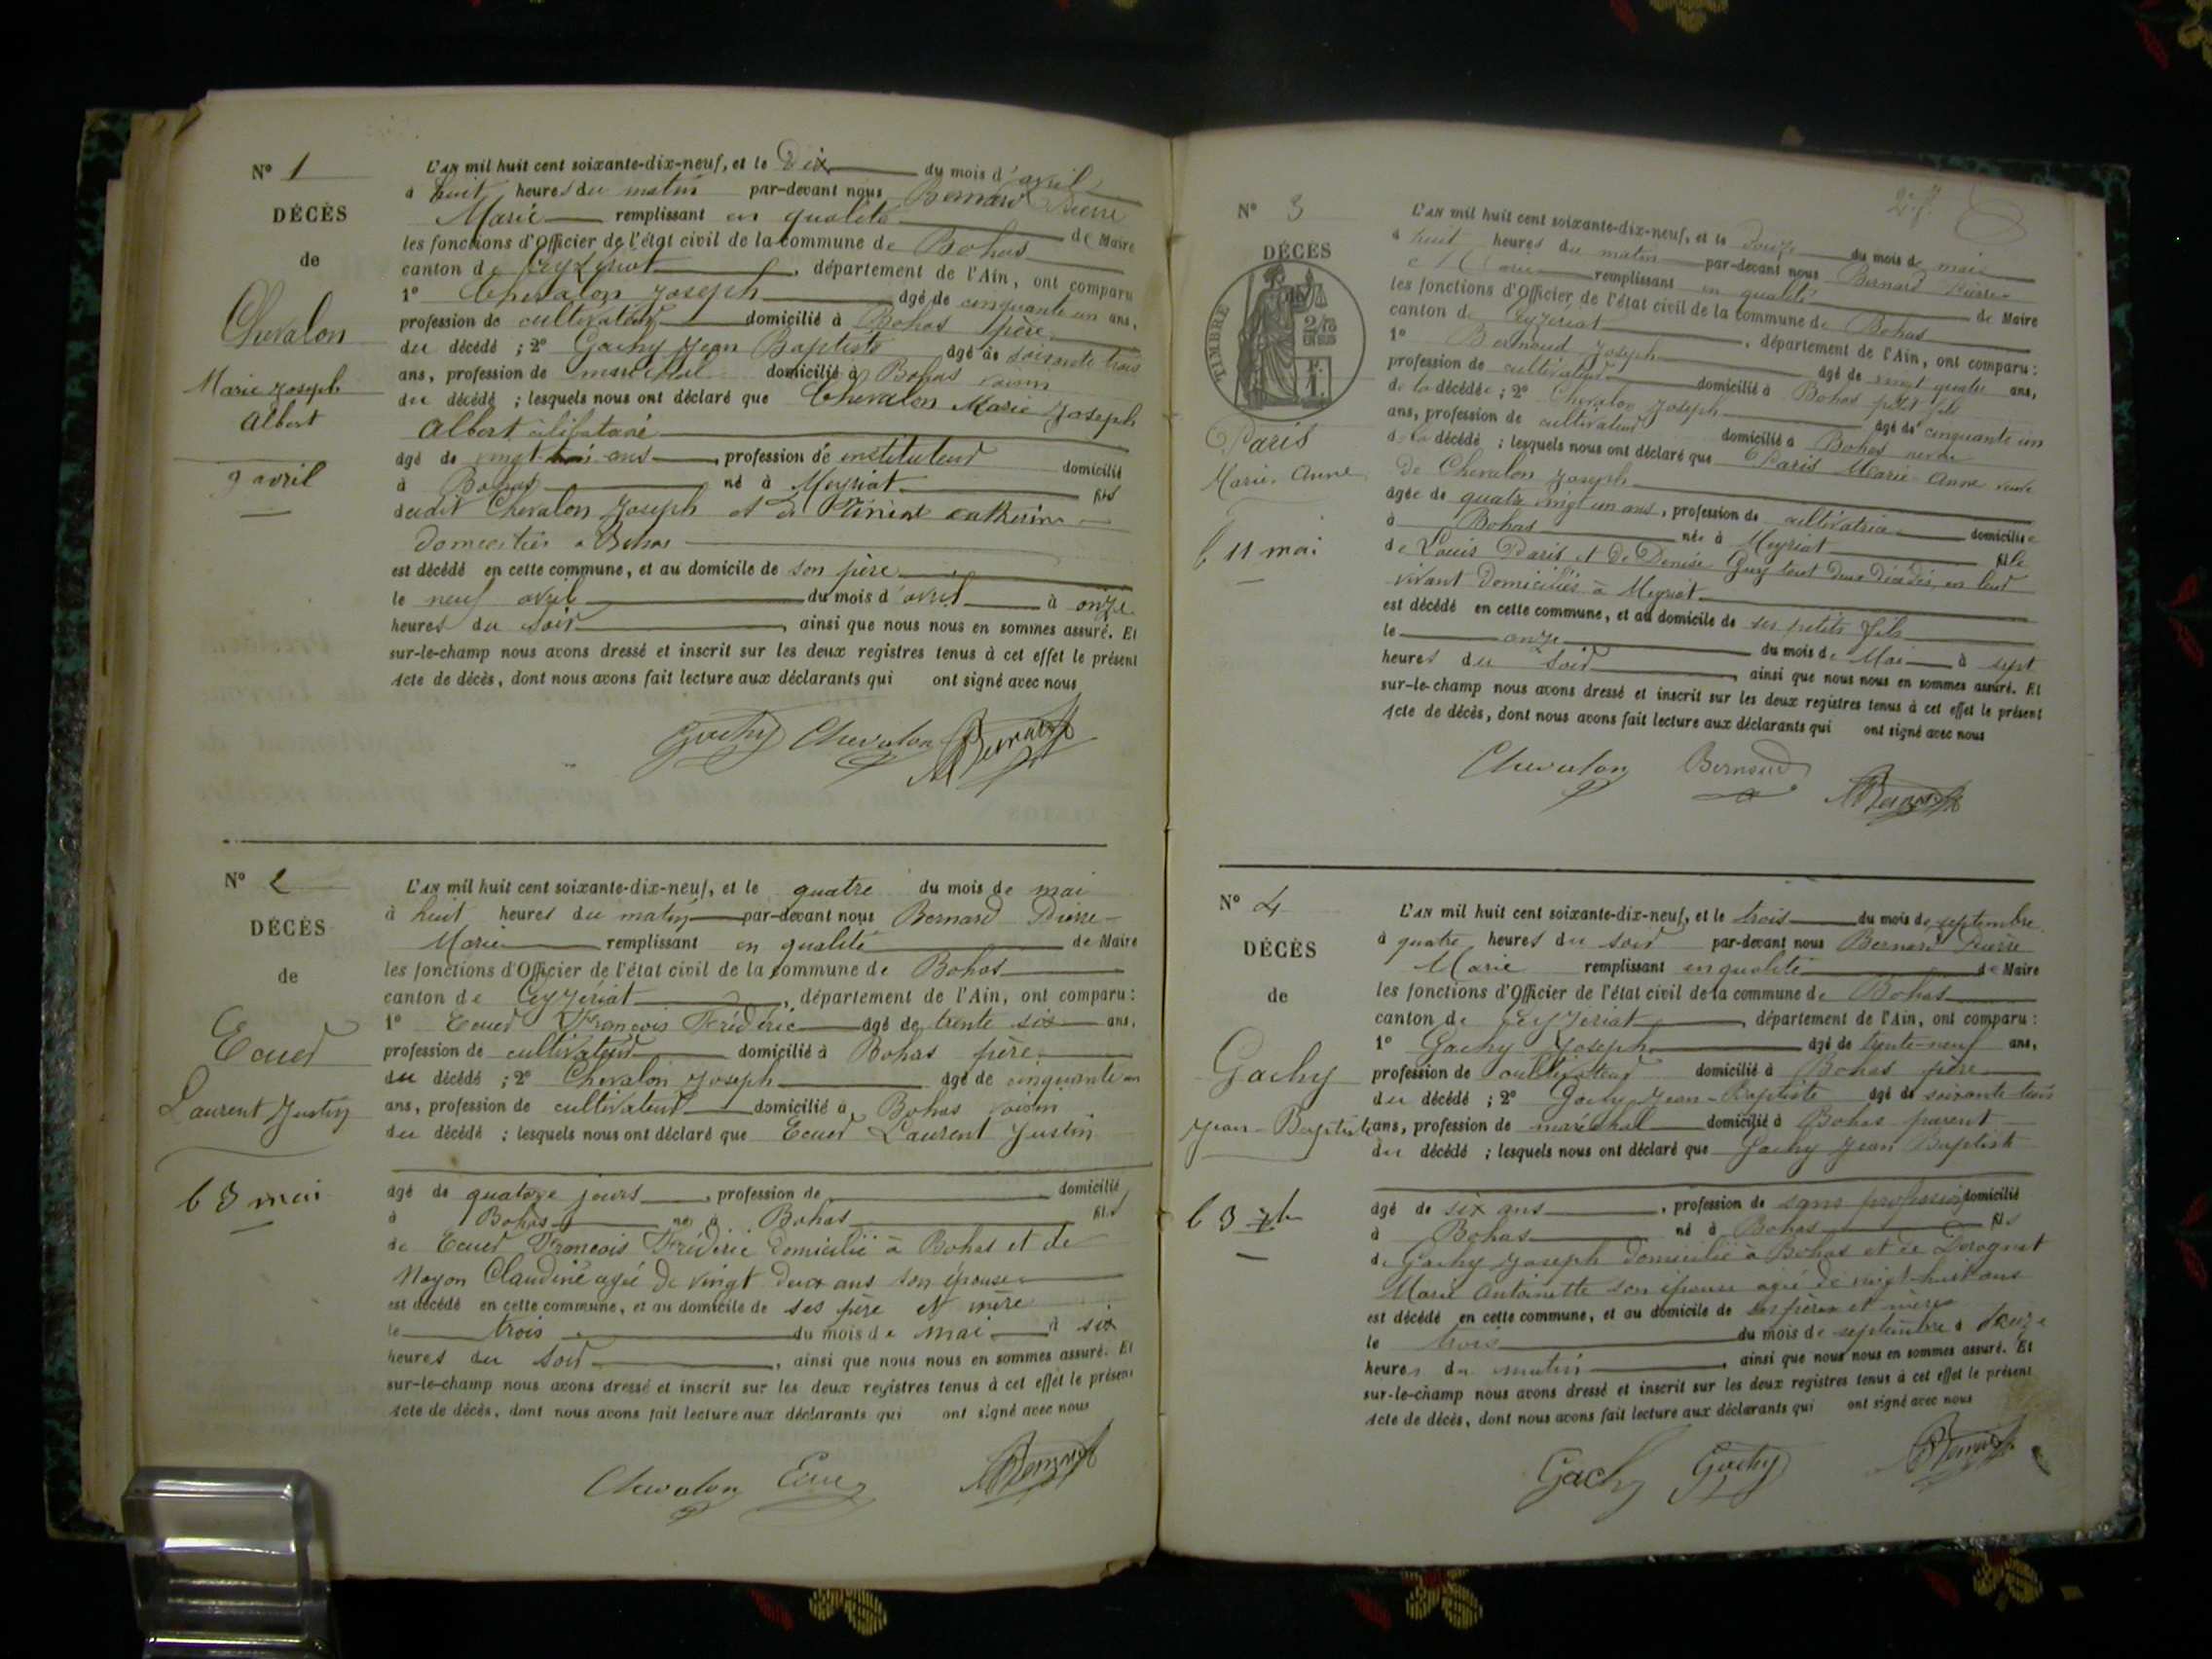 N° 1
DÉCÈS
de
Chevalon
Marie Joseph
Albert
9 avril
L'AN mil huit cent soixante-dix-neuf, et le Dix du mois d'avril
à huit heures du matin par-devant nous Bernard Pierre
Marie remplissant en qualité de Maire
les fonctions d'Officier de l'état civil de la commune de Bohas
canton de Ceyzériat, département de l'Ain, ont comparu
1° Chevalon Joseph âgé de cinquante un ans,
profession de cultivateur domicilié à Bohas père
du décédé ; 2° Gachy Jean Baptiste âgé de soixante trois
ans, profession de maréchal domicilié à Bohas voisin
du décédé ; lesquels nous ont déclaré que Chevalon Marie Joseph
Albert célibataire
âgé de vingt ans, profession de instituteur domicilié
à Bohas né à Meyriat fils
dudit Chevalon Joseph et de catherine
domiciliés à Bohas
est décédé en cette commune, et au domicile de son père
le neuf avril du mois d'avril à onze
heures du soir, ainsi que nous nous en sommes assuré. Et
sur-le-champ nous avons dressé et inscrit sur les deux registres tenus à cet effet le présent
Acte de décès, dont nous avons fait lecture aux déclarants qui ont signé avec nous
Gachy Chevalon Bernard
N° 2
DÉCÈS
de
Ecuer
Laurent Justin
le 3 mai
L'AN mil huit cent soixante-dix-neuf, et le quatre du mois de mai
à huit heures du matin par-devant nous Bernard Pierre
Marie remplissant en qualité de Maire
les fonctions d'Officier de l'état civil de la commune de Bohas
canton de Ceyzériat, département de l'Ain, ont comparu :
1° Ecuer François Frédéric âgé de trente six ans,
profession de cultivateur domicilié à Bohas père
du décédé ; 2° Chevalon Joseph âgé de cinquante un
ans, profession de cultivateur domicilié à Bohas voisin
du décédé ; lesquels nous ont déclaré que Ecuer Laurent Justin
âgé de quatorze jours, profession de domicilié
à Bohas né à Bohas fils
de Ecuer François Frédéric domicilié à Bohas et de
Noyon Claudine agée de vingt deux ans son épouse
est décédé en cette commune, et au domicile de ses père et mère
le trois du mois de mai à six
heures du soir, ainsi que nous nous en sommes assuré. Et
sur-le-champ nous avons dressé et inscrit sur les deux registres tenus à cet effet le présent
Acte de décès, dont nous avons fait lecture aux déclarants qui ont signé avec nous
Chevalon Ecuer Bernard
N° 3
DÉCÈS
TIMBRE
Paris
Marie Anne
le 11 mai
L'AN mil huit cent soixante-dix-neuf, et le douze du mois de mai
à huit heures du matin par-devant nous Bernard Pierre
Marie remplissant en qualité de Maire
les fonctions d'Officier de l'état civil de la commune de Bohas
canton de Ceyzériat, département de l'Ain, ont comparu :
1° Bernoud Joseph âgé de vingt quatre ans,
profession de cultivateur domicilié à Bohas petit fils
de la décédée ; 2° Chevalon Joseph âgé de cinquante un
ans, profession de cultivateur domicilié à Bohas neveu
de la décédé ; lesquels nous ont déclaré que Paris Marie Anne veuve
de Chevalon Joseph
âgée de quatre vingt un ans, profession de cultivatrice domiciliée
à Bohas née à Meyriat fille
de Louis Paris et de Denise Guy tout deux décédés en leur
vivant domiciliés à Meyriat
est décédé en cette commune, et au domicile de ses petits fils
le onze du mois de Mai à sept
heures du soir, ainsi que nous nous en sommes assuré. Et
sur-le-champ nous avons dressé et inscrit sur les deux registres tenus à cet effet le présent
Acte de décès, dont nous avons fait lecture aux déclarants qui ont signé avec nous
Chevalon Bernoud Bernard
N° 4
DÉCÈS
de
Gachy
Jean-Baptiste
le 3 7b
L'AN mil huit cent soixante-dix-neuf, et le trois du mois de septembre
à quatre heures du soir par-devant nous Bernard Pierre
Marie remplissant en qualité de Maire
les fonctions d'Officier de l'état civil de la commune de Bohas
canton de Ceyzériat, département de l'Ain, ont comparu :
1° Gachy Joseph âgé de trente-neuf ans,
profession de cultivateur domicilié à Bohas père
du décédé ; 2° Gachy Jean-Baptiste âgé de soixante trois
ans, profession de maréchal domicilié à Bohas parent
du décédé ; lesquels nous ont déclaré que Gachy Jean Baptiste
âgé de six ans, profession de sans profession domicilié
à Bohas né à Bohas fils
de Gachy Joseph domicilié à Bohas et de Dérognat
Marie Antoinette son épouse agée de vingt-huit ans
est décédé en cette commune, et au domicile de ses père et mère
le trois du mois de septembre à
heures du matin, ainsi que nous nous en sommes assuré. Et
sur-le-champ nous avons dressé et inscrit sur les deux registres tenus à cet effet le présent
Acte de décès, dont nous avons fait lecture aux déclarants qui ont signé avec nous
Gachy Gachy Bernard